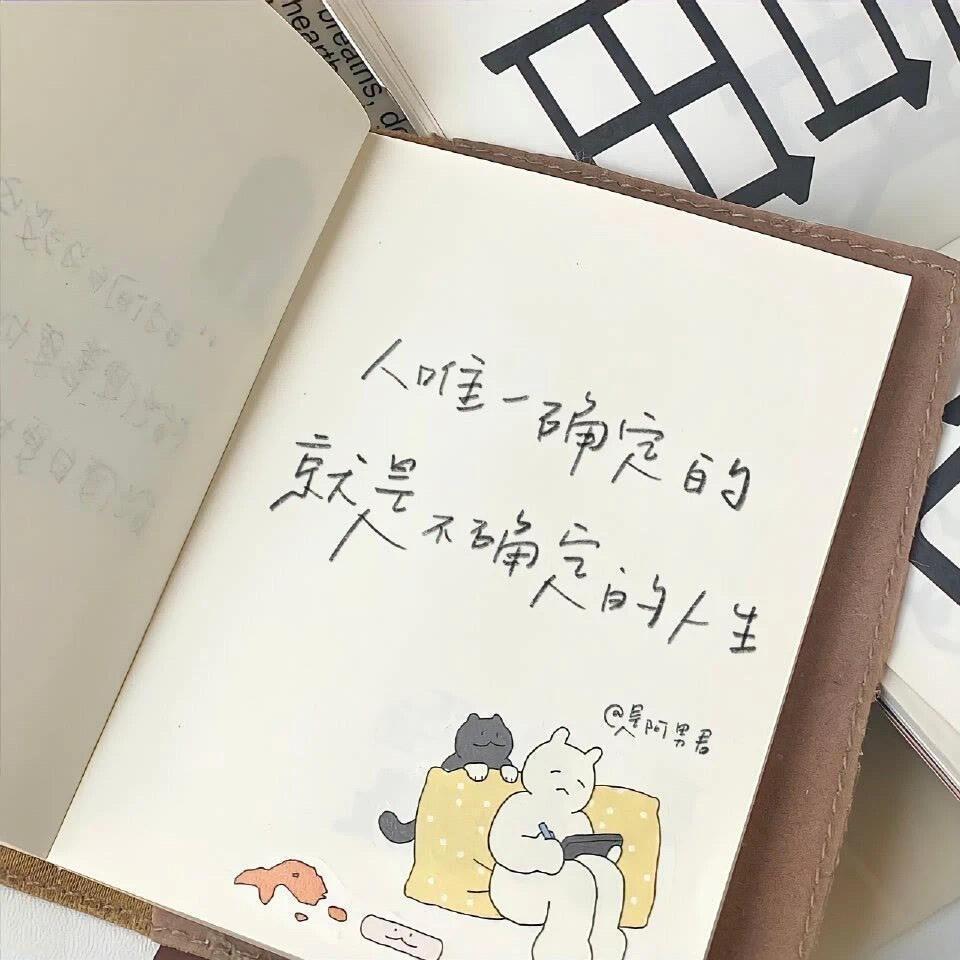 breains, do
hearth
人唯一确定的
就是不确定的人生
@是阿男君